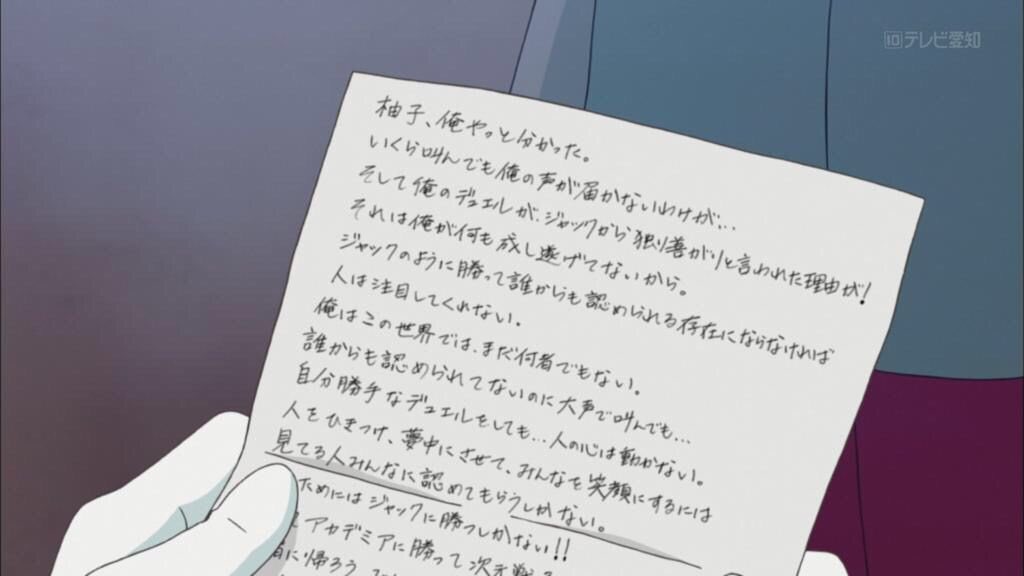 テレビ愛知
柚子、俺やっと分かった。
いくら叫んでも俺の声が届かないわけが…
そして俺のデュエルが、ジャックから独り善がりと言われた理由が!
それは俺が何も成し遂げてないから。
ジャックのように勝って誰からも認められる存在にならなければ
人は注目してくれない。
俺はこの世界では、まだ何者でもない。
誰からも認められてないのに大声で叫んでも…
自分勝手なデュエルをしても…人の心は動かない。
人をひきつけ、夢中にさせて、みんなを笑顔にするには
見てる人みんなに認めてもらうしかない。
ためにはジャックに勝つしかない!!
アカデミアに勝って次元戦
に帰ろう